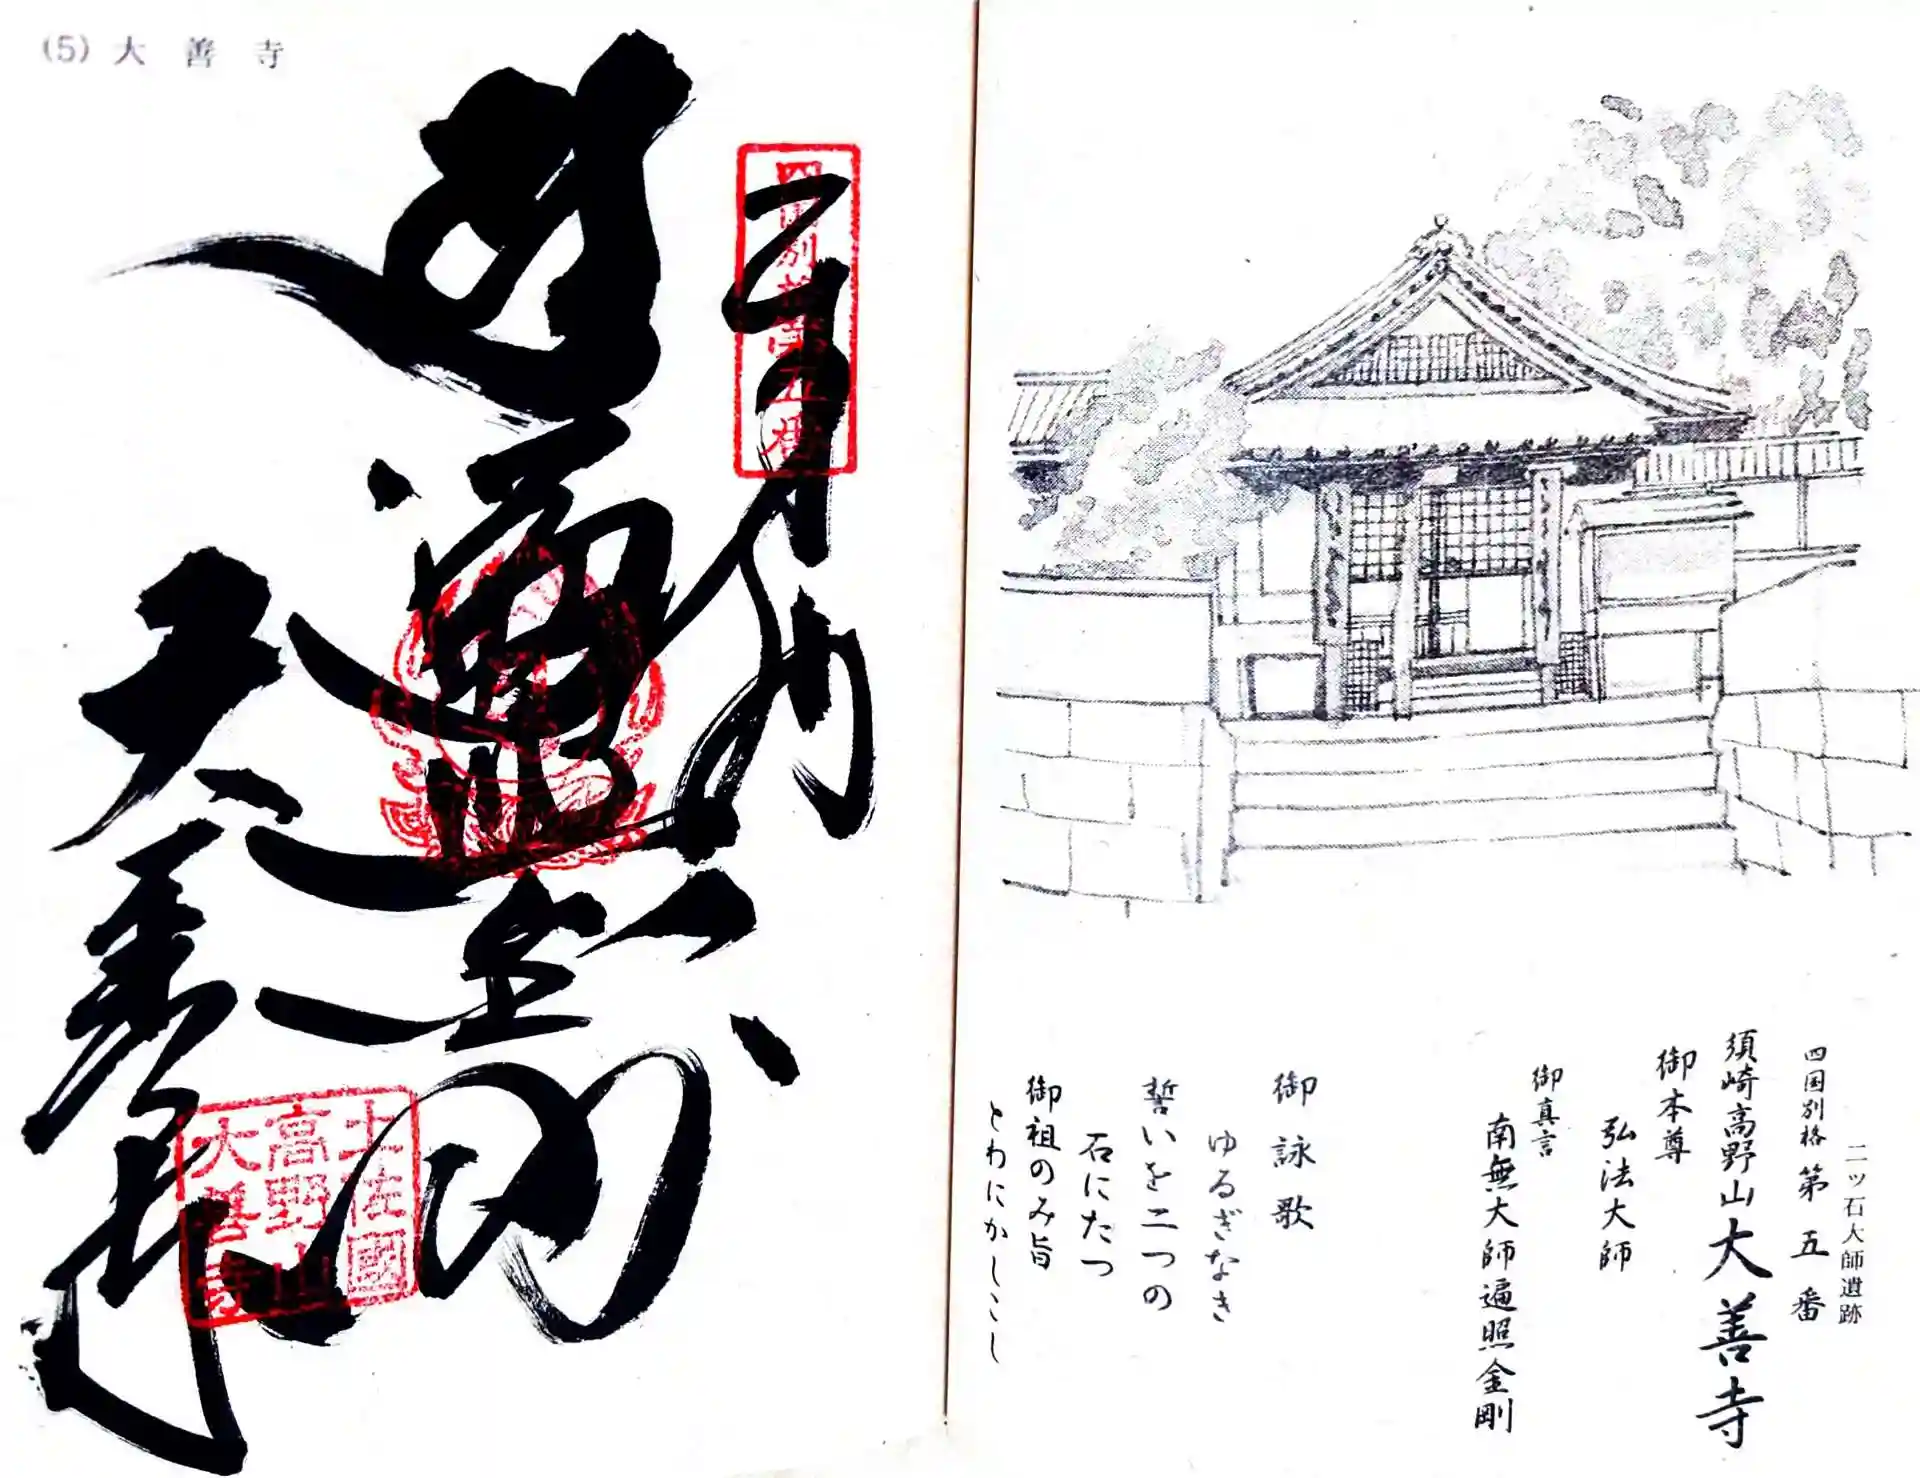 二ツ石大師遺跡
四国別格 第五番
須崎高野山大善寺
御本尊
弘法大師
御真言
南無大師遍照金剛
御詠歌
ゆるぎなき
誓いを二つの
石にたつ
御祖のみ旨
とわにかしこし
(5) 大善寺
四国別格第五番
遍照金剛
大善寺
土佐國
高野山
大善寺